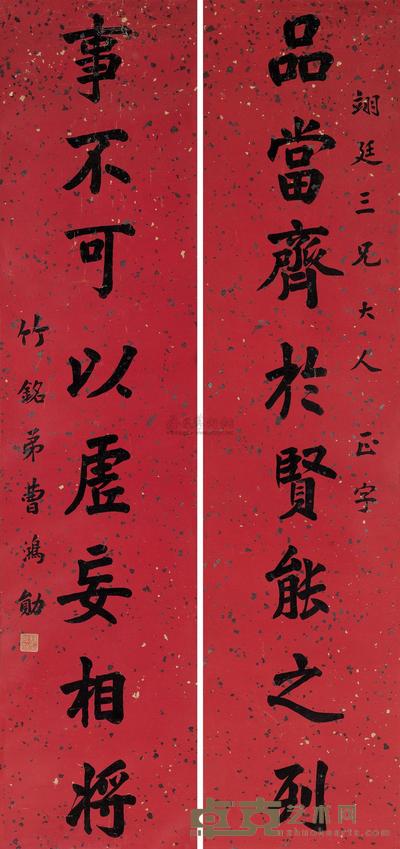 翊廷三兄大人正字
品當齊於賢能之列
事不可以虛妄相將
竹銘弟曹鴻勛
卓克艺术网